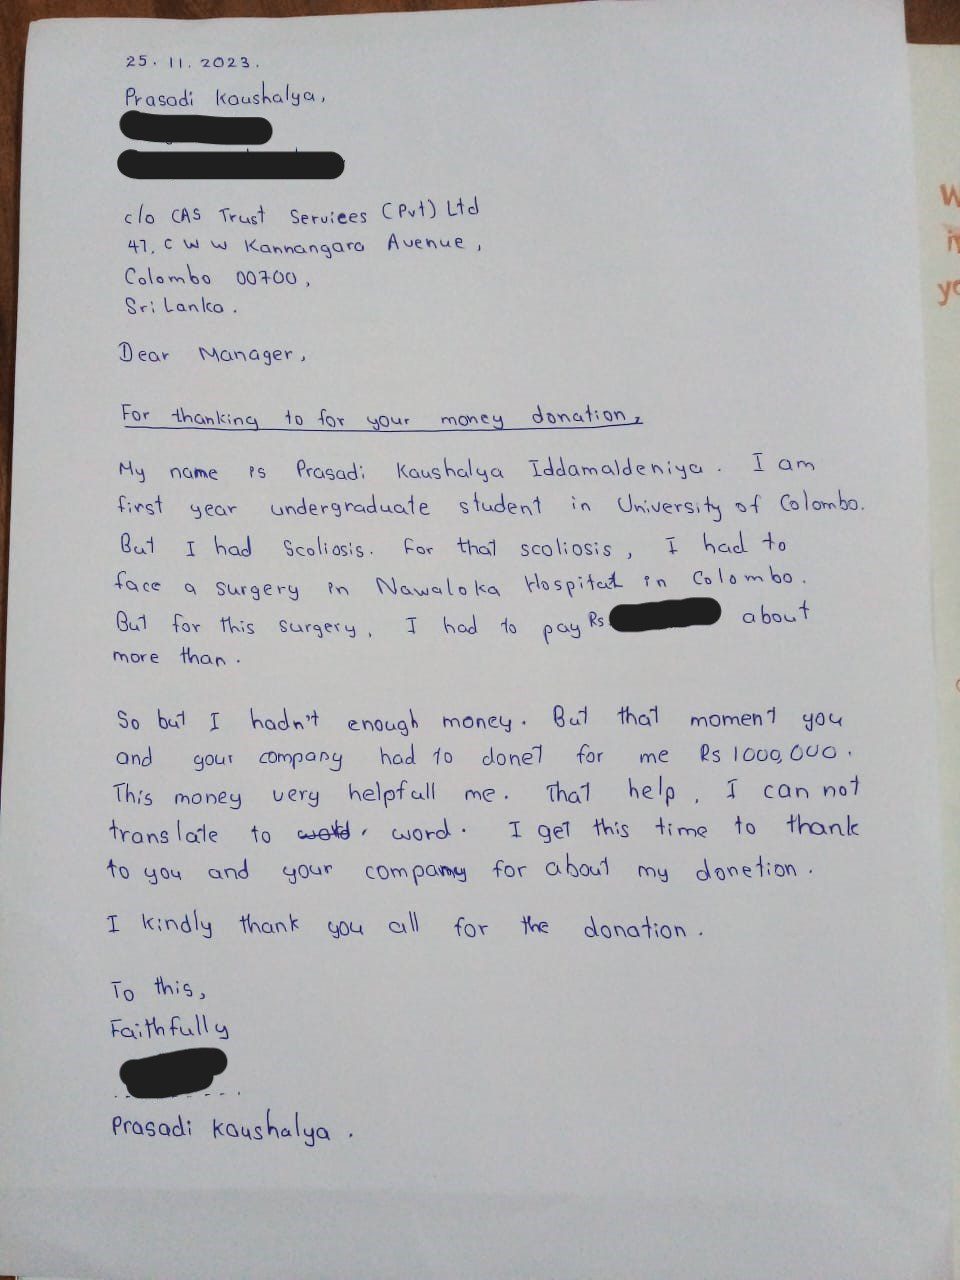 25. 11. 2023.
Prasadi Kaushalya,
c/o CAS Trust Serviees (Pvt) Ltd
47, C W W Kannangara Avenue,
Colombo 00700,
Sri Lanka.
Dear Manager,
For thanking to for your money donation,
My name is Prasadi Kaushalya Iddamaldeniya. I am
first year undergraduate student in University of Colombo.
But I had Scoliosis. For that scoliosis, I had to
face a surgery in Nawaloka Hospital in Colombo.
But for this surgery, I had to pay Rs. about
more than.
So but I hadn't enough money. But that moment you
and your company had to donet for me Rs 1000,000.
This money very helpfull me. That help, I can not
translate to word. I get this time to thank
to you and your company for about my donetion.
I kindly thank you all for the donation.
To this,
Faithfully
Prasadi Kaushalya.